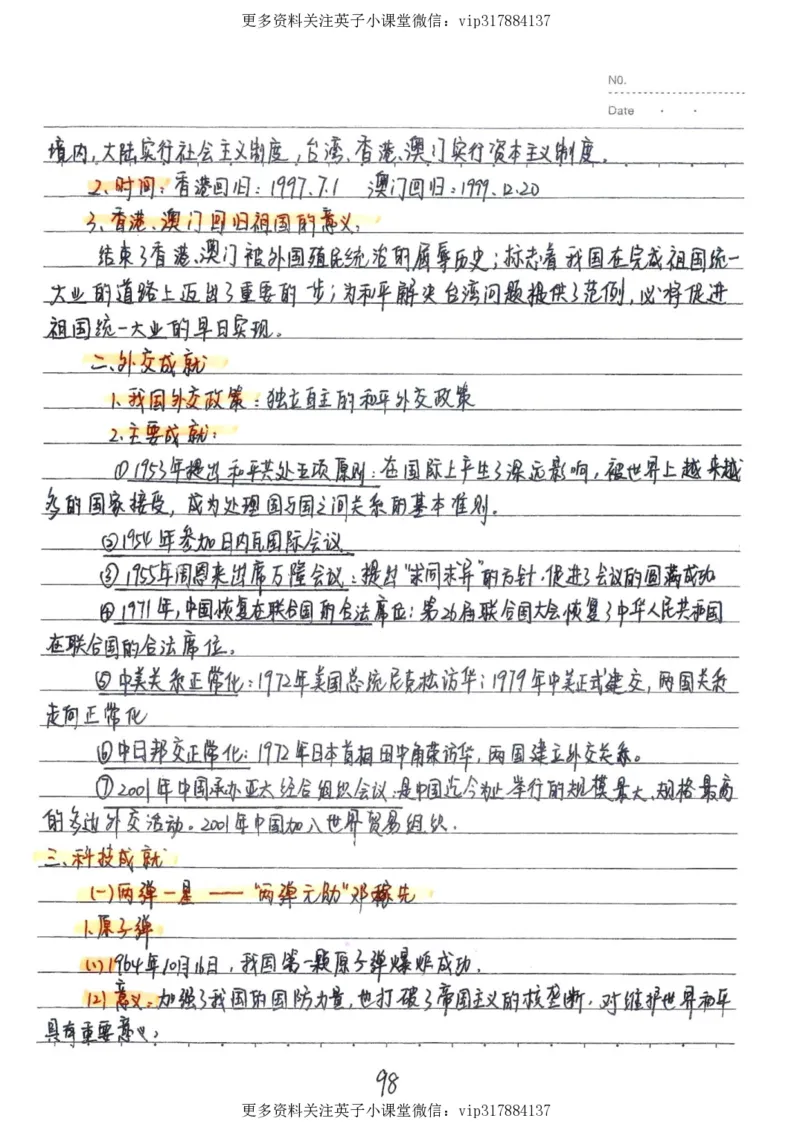 更多资料关注英子小课堂微信：vip317884137
NO.
Date
境内，大陆实行社会主义制度，台湾、香港、澳门实行资本主义制度。
2、时间：香港回归：1997.7.1 澳门回归：1999.12.20
3、香港、澳门回归祖国的意义：
结束了香港、澳门被外国殖民统治的屈辱历史；标志着我国在完成祖国统一
大业的道路上迈出了重要的一步；为和平解决台湾问题提供了范例，必将促进
祖国统一大业的早日实现。
二、外交成就
1、我国外交政策：独立自主的和平外交政策
2、主要成就：
①1953年提出和平共处五项原则：在国际上产生了深远影响，被世界上越来越
多的国家接受，成为处理国与国之间关系的基本准则。
②1954年参加日内瓦国际会议
③1955年周恩来出席万隆会议：提出"求同求异"的方针，促进了会议的圆满成功
④1971年，中国恢复在联合国的合法席位：第26届联合国大会恢复了中华人民共和国
在联合国的合法席位。
⑤中美关系正常化：1972年美国总统尼克松访华；1979年中美正式建交，两国关系
走向正常化
⑥中日邦交正常化：1972年日本首相田中角荣访华，两国建立外交关系。
⑦2001年中国承办亚太经合组织会议：是中国迄今为止举行的规模最大、规格最高
的多边外交活动。2001年中国加入世界贸易组织．
三、科技成就
(一)两弹一星——"两弹元勋"邓稼先
1、原子弹
(1)1964年10月16日，我国第一颗原子弹爆炸成功．
(2)意义：加强了我国的国防力量，也打破了帝国主义的核垄断，对维护世界和平
具有重要意义；
98
更多资料关注英子小课堂微信：vip317884137